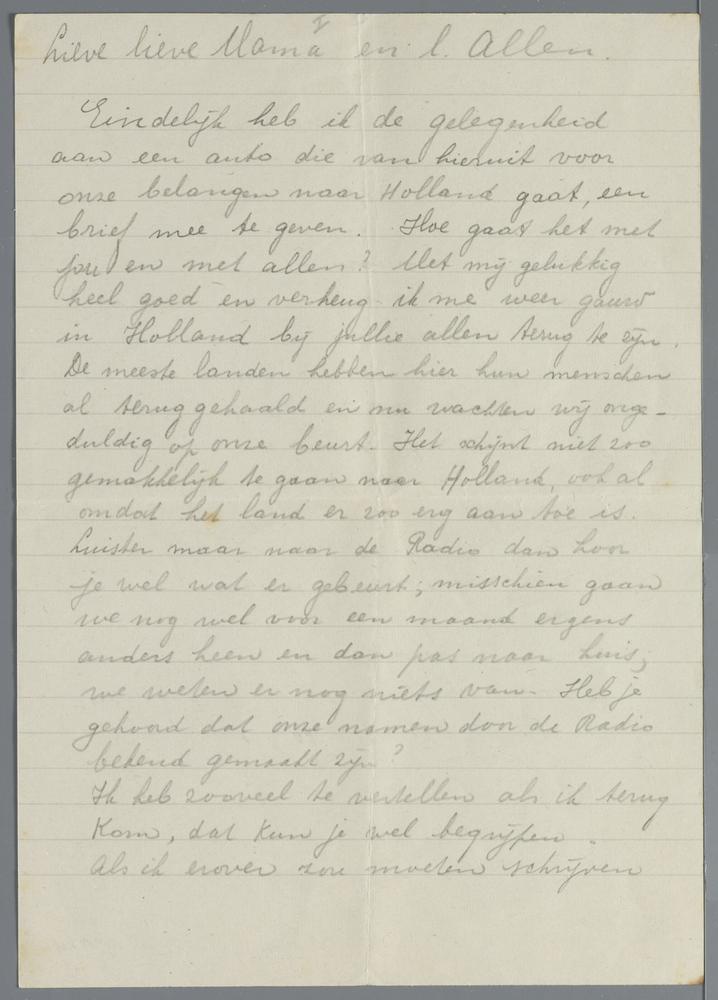 I
Lieve lieve Mama en l. Allen.
Eindelijk heb ik de gelegenheid
aan een auto die van hieruit voor
onze belangen naar Holland gaat, een
brief mee te geven. Hoe gaat het met
jou en met allen? Met mij gelukkig
heel goed en verheug ik me weer gauw
in Holland bij jullie allen terug te zijn.
De meeste landen hebben hier hun menschen
al terug gehaald en nu wachten wij onge-
duldig op onze beurt. Het schijnt niet zoo
gemakkelijk te gaan naar Holland, ook al
omdat het land er zoo erg aan toe is.
Luister maar naar de Radio dan hoor
je wel wat er gebeurt; misschien gaan
we nog wel voor een maand ergens
anders heen en dan pas naar huis;
we weten er nog niets van. Heb je
gehoord dat onze namen door de Radio
bekend gemaakt zijn?
Ik heb zooveel te vertellen als ik terug
kom, dat kun je wel begrijpen.
Als ik erover zou moeten schrijven